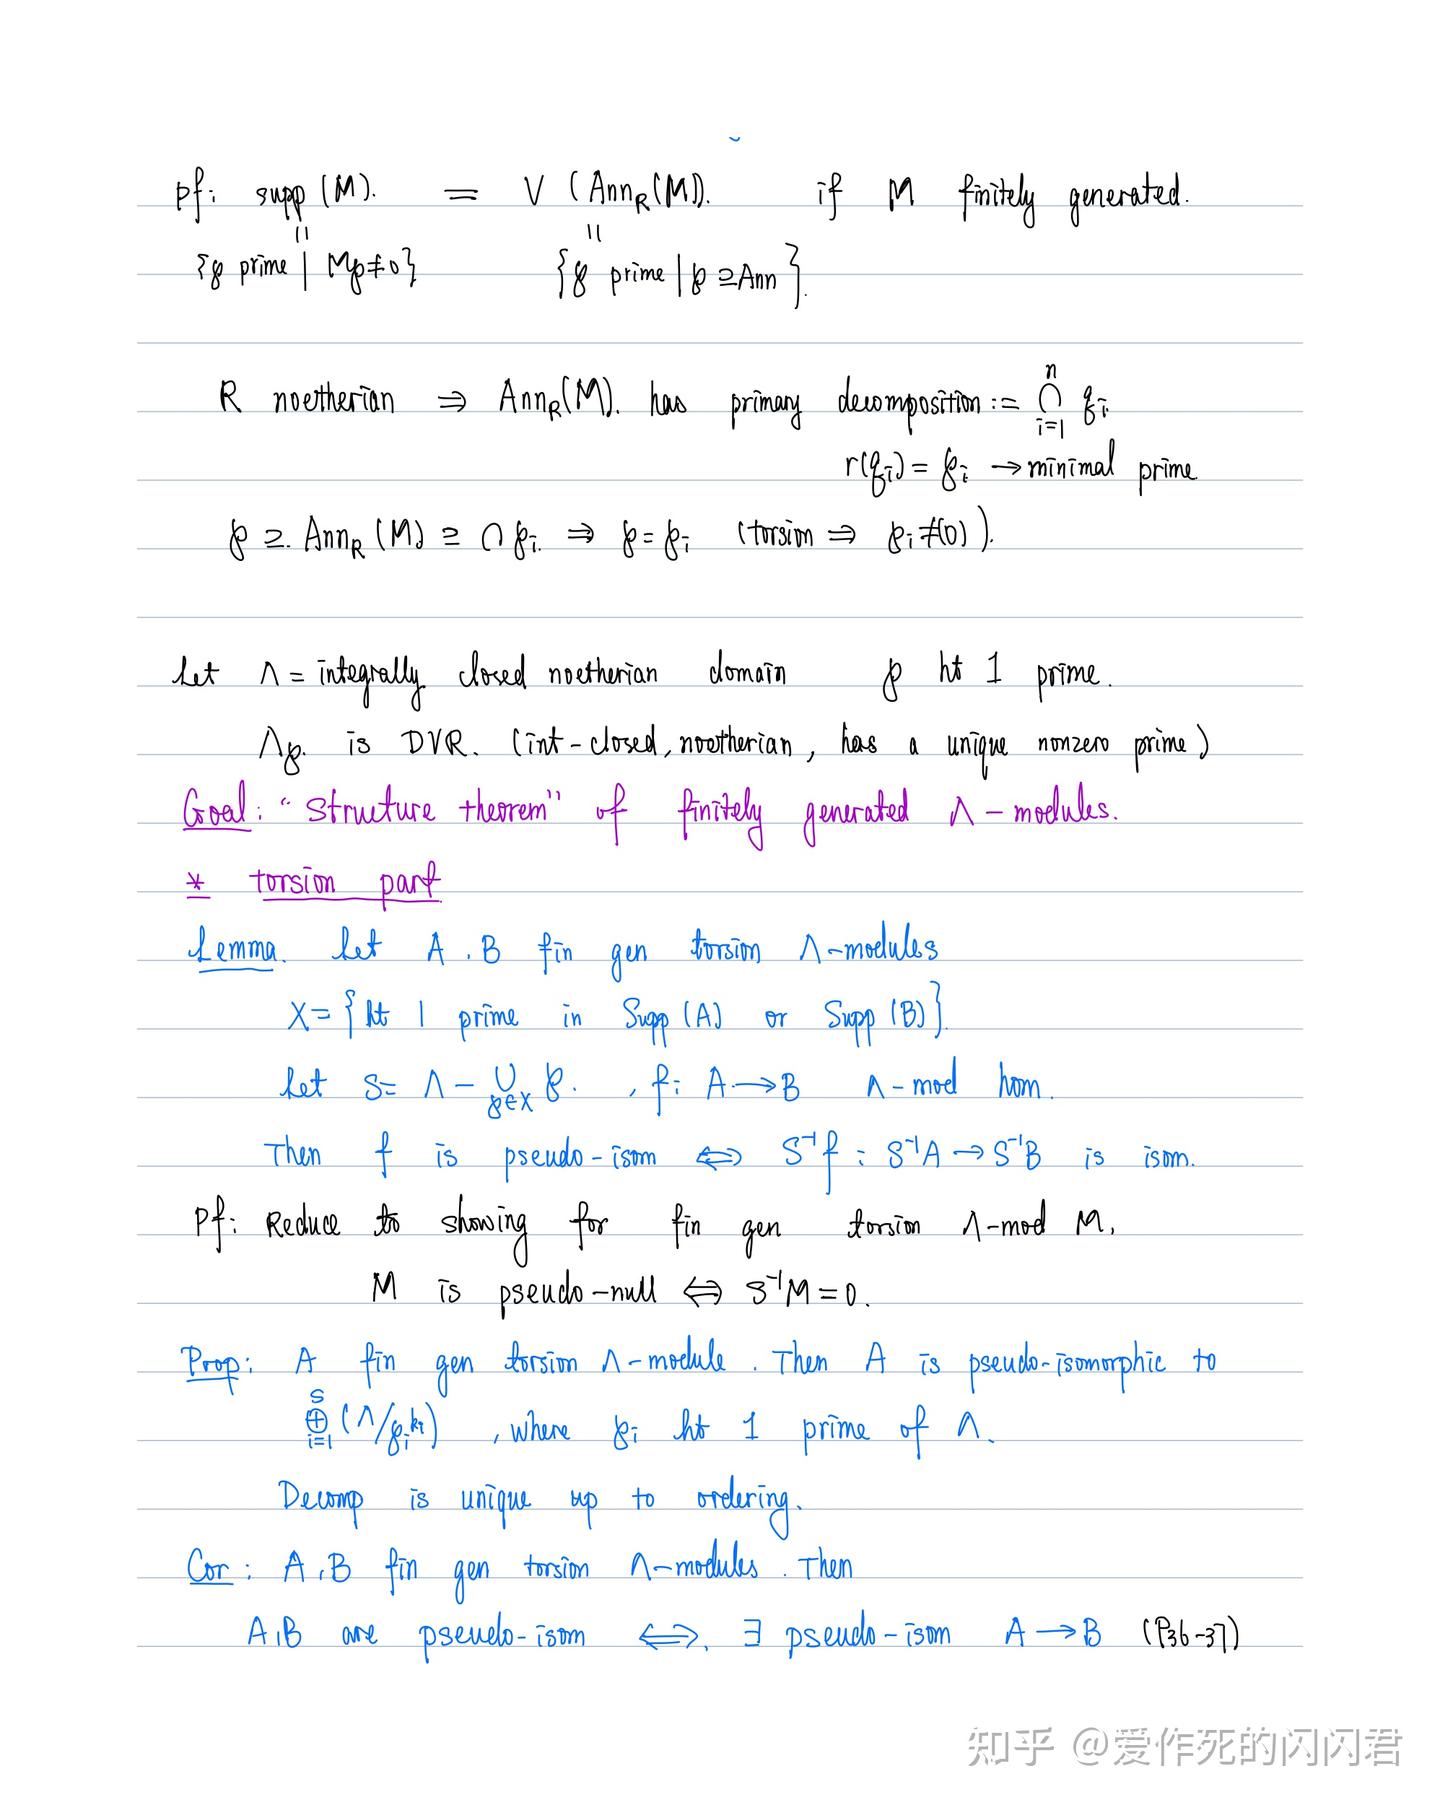 Pf: supp(M). = V(Ann_R(M)). if M finitely generated.
|| ||
{℘ prime | M_℘≠0} {℘ prime | ℘ ⊇ Ann}.
R noetherian ⇒ Ann_R(M). has primary decomposition := ⋂_{i=1}^{n} q_i.
r(q_i) = ℘_i → minimal prime
℘ ⊇. Ann_R(M) ⊇ ∩℘_i. ⇒ ℘=℘_i (torsion ⇒ ℘_i ≠(0)).
Let Λ = integrally closed noetherian domain ℘ ht 1 prime.
Λ_℘. is DVR. (int-closed, noetherian, has a unique nonzero prime)
Goal: "Structure theorem" of finitely generated Λ-modules.
* torsion part
Lemma. Let A, B fin gen torsion Λ-modules
X = {ht 1 prime in Supp(A) or Supp(B)}
Let S = Λ - ⋃_{℘∈X} ℘. , f: A → B Λ-mod hom.
Then f is pseudo-isom ⟺ S⁻¹f : S⁻¹A → S⁻¹B is isom.
Pf: Reduce to showing for fin gen torsion Λ-mod M,
M is pseudo-null ⟺ S⁻¹M = 0.
Prop: A fin gen torsion Λ-module. Then A is pseudo-isomorphic to
⊕_{i=1}^{s} (Λ/℘_i^{k_i}) , where ℘_i ht 1 prime of Λ.
Decomp is unique up to ordering.
Cor: A, B fin gen torsion Λ-modules. Then
A, B are pseudo-isom ⟺. ∃ pseudo-isom A → B (P36-37)
知乎 @爱作死的闪闪君